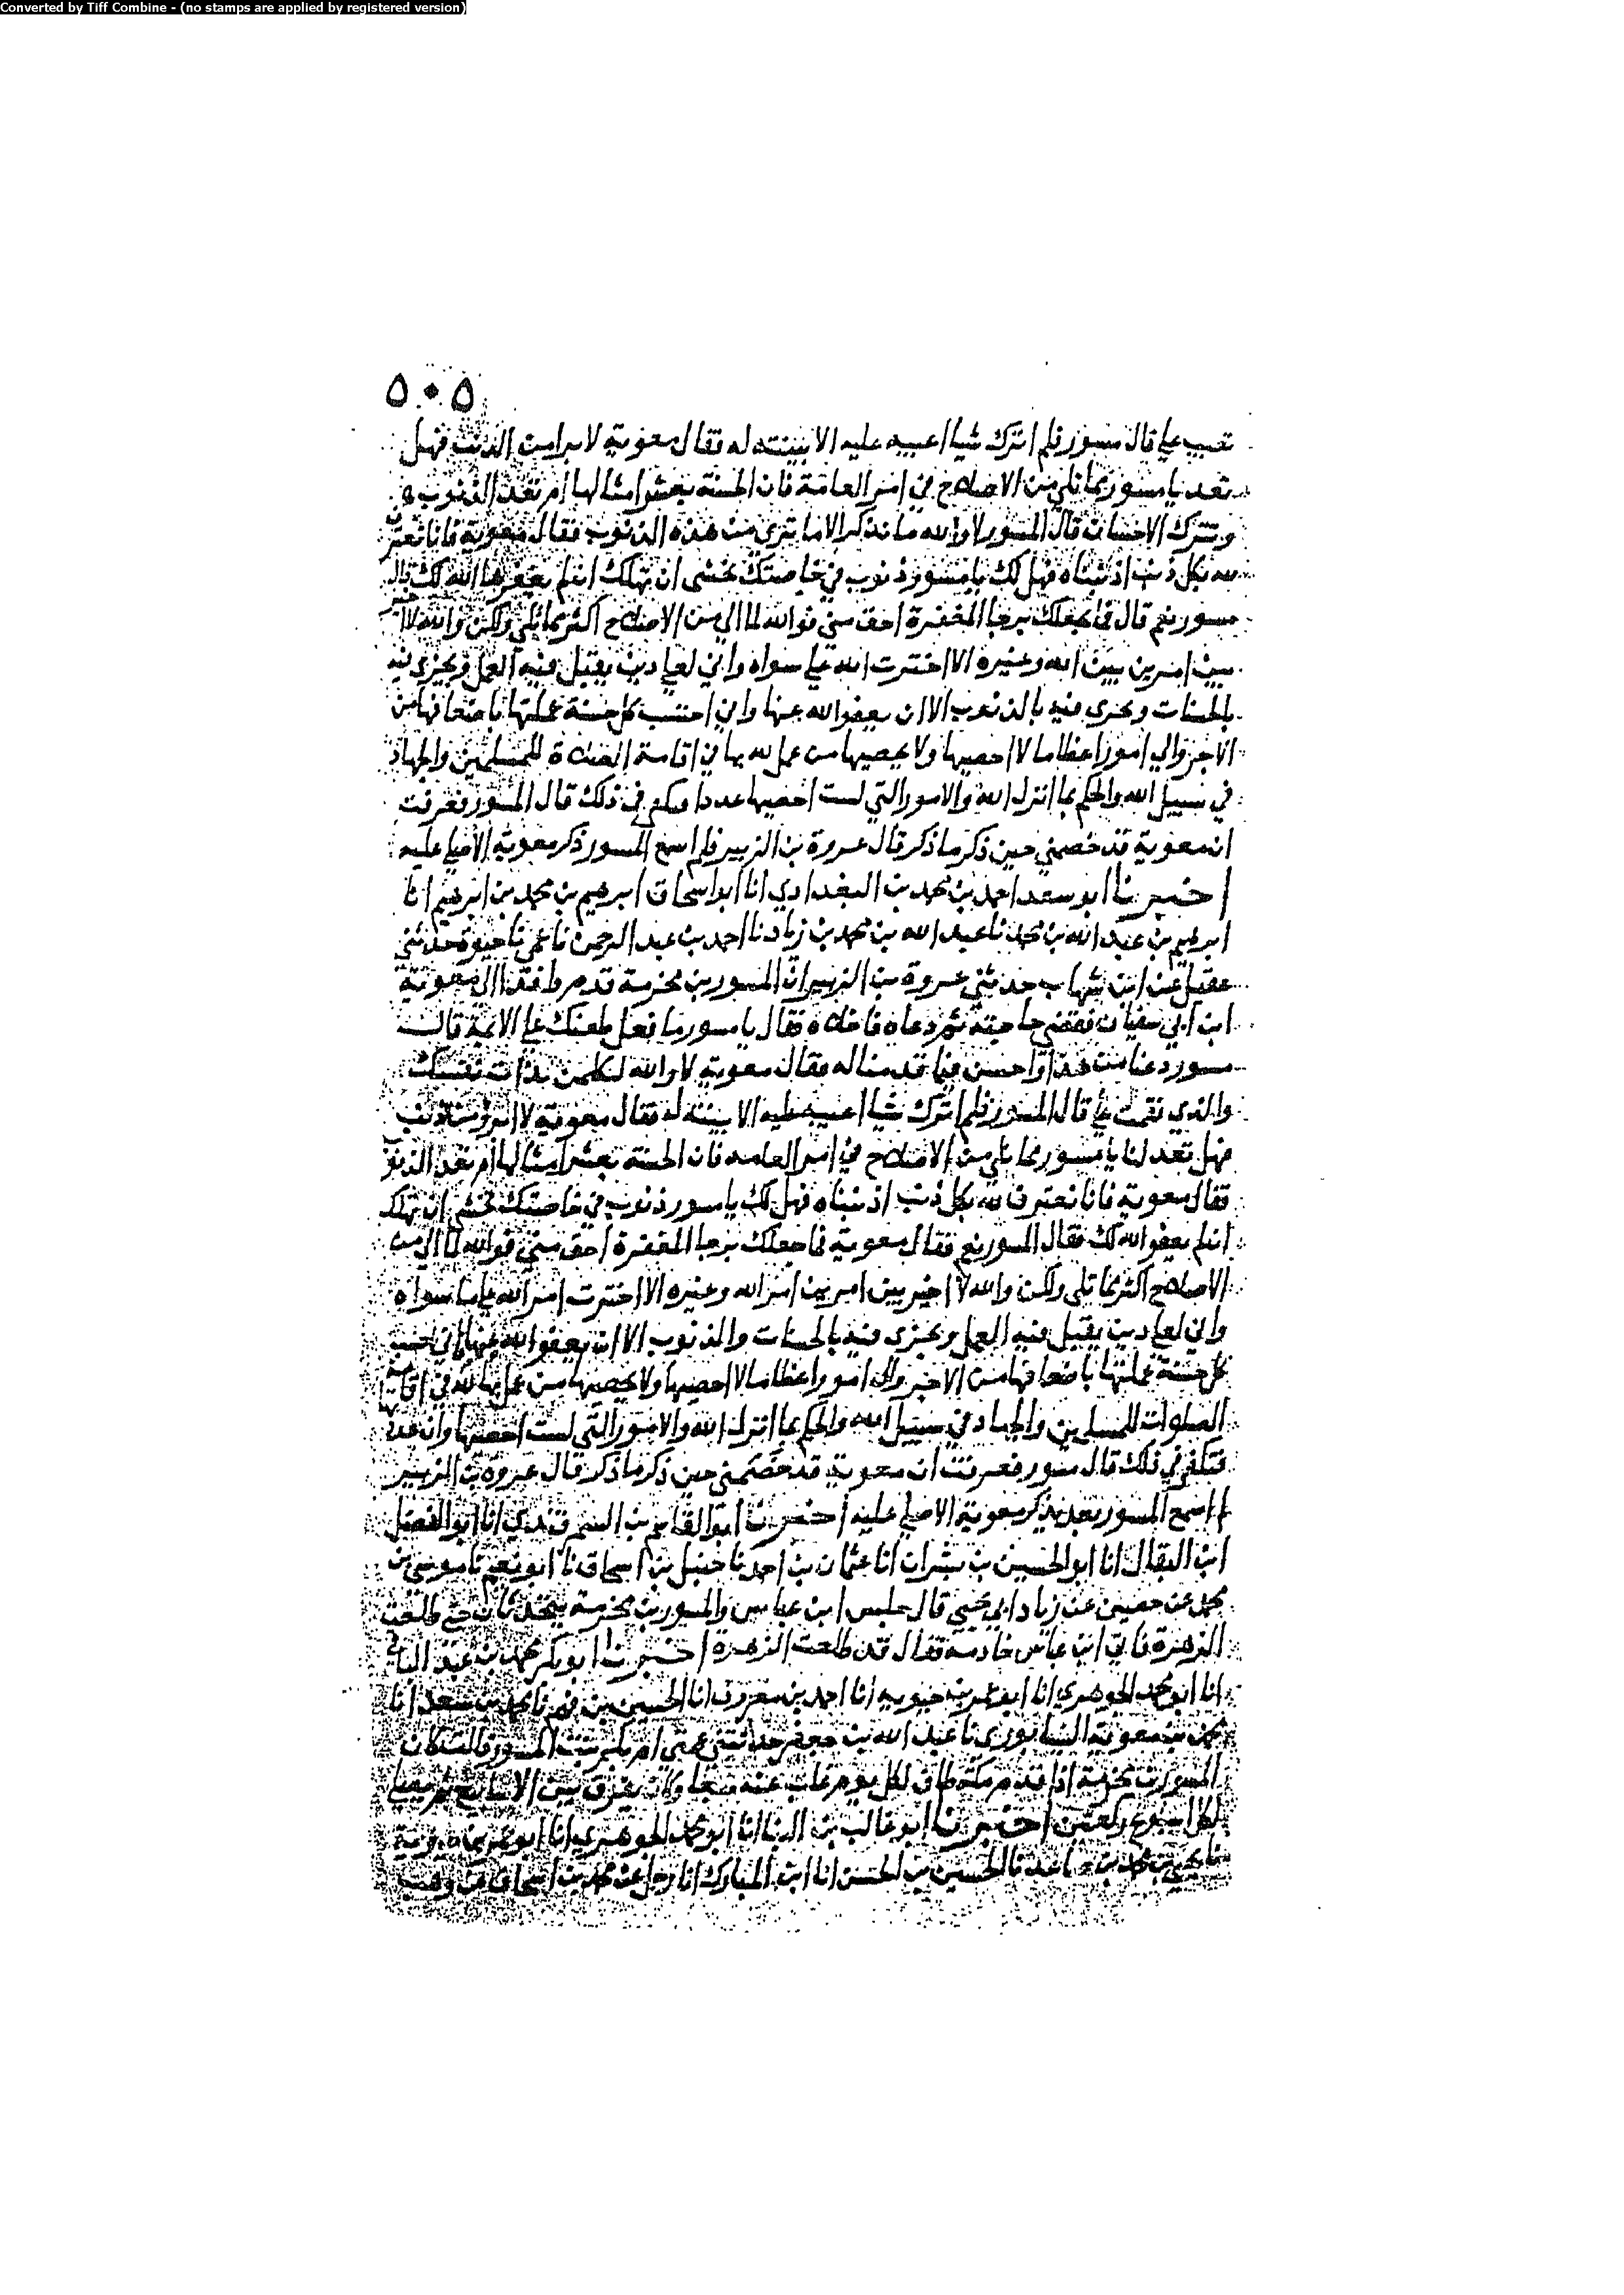 Converted by Tiff Combine - (no stamps are applied by registered version)
٥٠٥
تعيب علي قال مسور فلم اترك شيا اعيبه عليه الا بينته له فقال معوية لا برا من الذنب فهل
تعد يا مسور مما نلي من الاصلاح في امر العامة فان الحسنة بعشر امثالها ام تعد الذنوب
وتترك الاحسان قال المسور لا والله ما نذكر الا ما ترى من هذه الذنوب فقال معوية فانا نعترف
لله بكل ذنب اذنبناه فهل لك يا مسور ذنوب في خاصتك تخشى ان تهلك ان لم يغفرها الله لك قال
مسور نعم قال فما يجعلك برجا المغفرة احق مني فوالله لما الي من الاصلاح اكثر مما تلي ولكن والله لا اخير
بين امرين بين الله وغيره الا اخترت الله على سواه واني لعلي دين يقبل فيه العمل ويجزى فيه
بالحسنات ويجزى فيه بالذنوب الا ان يعفو الله عنها واني احتسب كل حسنة عملتها باضعافها من
الاجر والي امورا عظاما لا احصيها ولا يحصيها من عمل لله بها في اقامة الصلاة للمسلمين والجهاد
في سبيل الله والحكم بما انزل الله والامور التي لست احصيها عددا فيكفي في ذلك قال المسور فعرفت
ان معوية قد خصمني حين ذكر ما ذكر قال عروة بن الزبير فلم اسمع المسور ذكر معوية الا صلى عليه
اخبرنا ابو سعد احمد بن محمد بن البغدادي انا ابو اسحاق ابرهيم بن محمد بن ابرهيم انا
ابرهيم بن عبد الله بن محمد نا عبد الله بن محمد بن زياد نا احمد بن عبد الرحمن نا عمي نا حيوة حدثني
عقيل عن ابن شهاب حدثني عروة بن الزبير ان المسور بن مخرمة قدم وافدا الى معوية
ابن ابي سفيان فقضى حاجته ثم دعاه فاخلاه فقال يا مسور ما فعل طعنك على الائمة قال
مسور دعنا من هذا واحسن فيما قدمنا له فقال معوية لا والله لتكلمن بذات نفسك
والذي نقمت علي قال المسور فلم اترك شيا اعيبه عليه الا بينته له فقال معوية لا ابرؤ من ذنب
فهل تعد لنا يا مسور مما نلي من الاصلاح في امر العامه فان الحسنة بعشر امثالها ام تعد الذنوب
فقال معوية فانا نعترف لله بكل ذنب اذنبناه فهل لك يا مسور ذنوب في خاصتك تخشى ان تهلك
ان لم يعفو الله لك فقال المسور نعم فقال معوية فما جعلك برجا المغفرة احق مني فوالله لما الي من
الاصلاح اكثر مما تلي ولكن والله لا اخير بين امرين امر الله وغيره الا اخترت امر الله على ما سواه
واني لعلى دين يقبل فيه العمل ويجزى فيه بالحسنات والذنوب الا ان يعفو الله عنها اني احتسب
كل حسنة عملتها باضعافها من الاجر والي امورا عظاما لا احصيها ولا يحصيها من عمل بها لله في اقامة
الصلوات للمسلمين والجهاد في سبيل الله والحكم بما انزل الله والامور التي لست احصيها وان عددتها
فتكفر في ذلك قال مسور فعرفت ان معوية قد خصمني حين ذكر ما ذكر قال عروة بن الزبير
لم اسمع المسور بعد يذكر معوية الا صلى عليه اخبرنا ابو القاسم بن السمرقندي انا ابو الفضل
ابن البقال انا ابو الحسين بن بشران انا عثمان بن احمد نا حنبل بن اسحاق نا ابو نعيم نا موسى بن
محمد عن حصين عن زياد ابي يحيى قال جلس ابن عباس والمسور بن مخرمة يتحدثان حتى طلعت
الزهرة فاتى ابن عباس خادمه فقال قد طلعت الزهرة اخبرنا ابو بكر محمد بن عبد الباقي
انا ابو محمد الجوهري انا ابو عمر بن حيويه انا احمد بن معروف انا الحسين بن فهم نا محمد بن سعد انا
محمد بن معوية النيسابوري نا عبد الله بن جعفر حدثتني عمتي ام بكر بنت المسور قالت كان
المسور بن مخرمة اذا قدم مكة طاف لكل يوم غاب عنه سبعا وكان يفرق بين الاسابيع ثم يصلي
لكل اسبوع ركعتين اخبرنا ابو غالب بن البنا انا ابو محمد الجوهري انا ابو عمر بن حيوية
نا يحيى بن محمد بن صاعد نا الحسين بن الحسن انا ابن المبارك انا رجل عن محمد بن اسحاق عن وهب